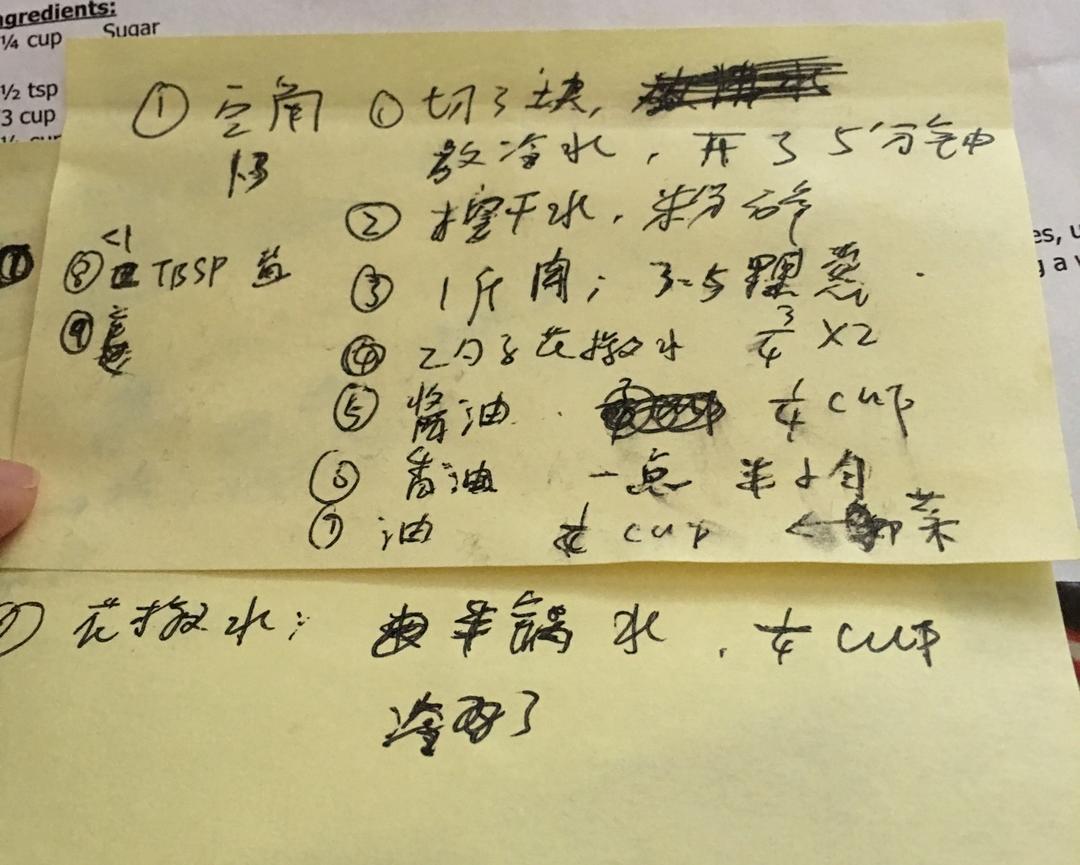 ngredients:
¼ cup Sugar
½ tsp
3 cup
es, u
g a w
① 豆角 ① 切了块,
馅 放冷水, 开了5分钟
② 擦干水,
③ 1斤肉; 3-5颗葱
④ 2勺子花椒水 3/4 ×2
⑤ 酱油 1/4 cup
⑥ 香油 一点 半小勺
⑦ 油 cup ← 菜
⑧ <1 TBSP 盐
⑨ 姜
花椒水; 半锅水, 1/4 cup
冷 了